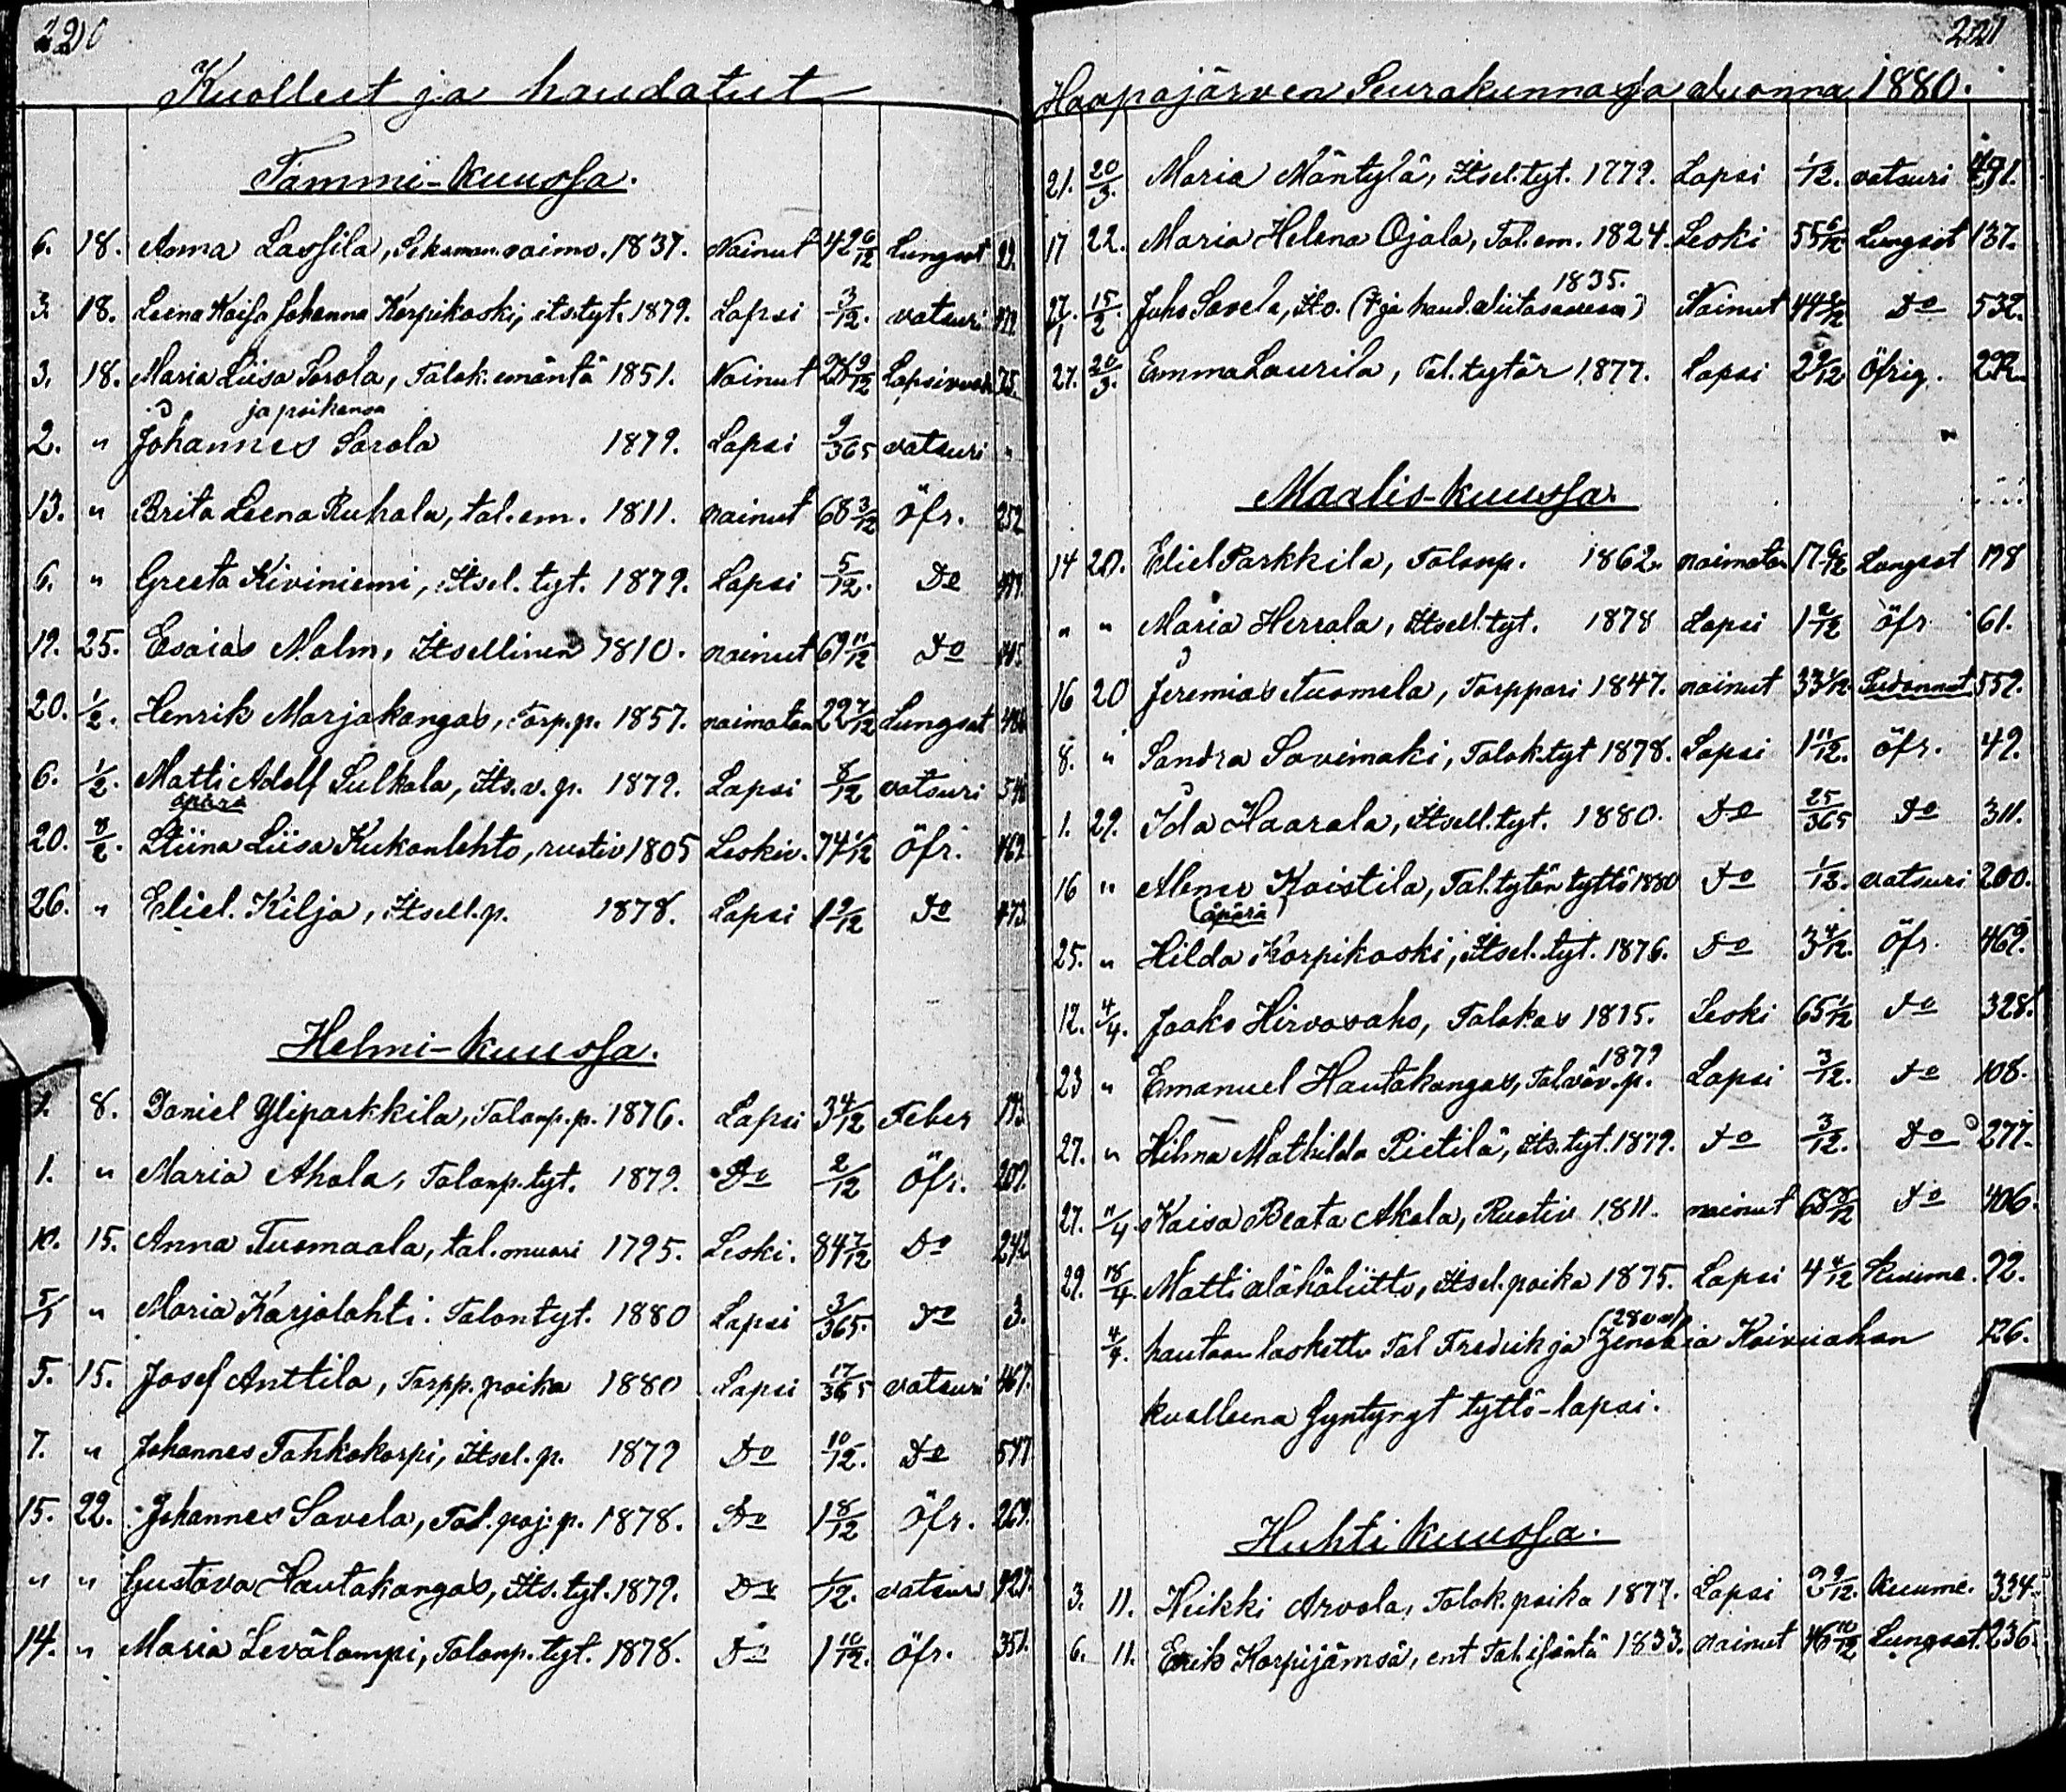 220
Kuolleet ja haudatut
Tammi-kuussa.
6. 18. Anna Lassila, 1837. Nainut 42 6/12 Lungsot
3. 18. Leena Kaisa Johanna Korpikoski, its.tyt. 1879. Lapsi 3/12. vatsuri
3. 18. Maria Liisa Sorola, Talok. emäntä 1851. Nainut 28 3/12 75.
ja poikansa
2. " Johannes Sarola 1879. Lapsi 9/365 vatsuri "
13. " Brita Leena Ruhala, tal. em. 1811. nainut 68 3/12 öfr. 252
6. " Greeta Kiviniemi, Itsel. tyt. 1879. Lapsi 5/12. Do
19. 25. Esaias Malm, Itsellinen 1810. nainut 69 11/12 Do
20. 1/2. Henrik Marjakangas, Torp.p. 1857. naimaton 22 7/12 Lungsot
6. 1/2. Matti Adolf Sulkala, Its. v. p. 1879. Lapsi 8/12 vatsuri
äpärä
20. 8/2. Stiina Liisa Kukonlehto, rustiv 1805 Leskiv. 74 1/12 öfr. 462
26. " Eliel. Kilja, Itsell. p. 1878. Lapsi 1 9/12 Do 473.
Helmi-kuussa.
1. 8. Daniel Yliparkkila, Talonp.p. 1876. Lapsi 3 4/12 Feber
1. " Maria Ahola, Talonp. tyt. 1879. Do 2/12 öfr. 207.
10. 15. Anna Tuomaala, tal. muori 1795. Leski. 84 7/12 Do 242
5/1 " Maria Karjalahti. Talontyt. 1880 Lapsi 3/365. Do 3.
5. 15. Josef Anttila, Torpp. poika 1880 Lapsi 17/365 vatsuri 467.
7. " Johannes Tahkokorpi, Itsel. p. 1879 Do 10/12. Do 547
15. 22. Johannes Savela, Tal. poj. p. 1878. Do 1 8/12 öfr. 269.
" " Gustava Hautakangas, Its. tyt. 1879. Do 1/12. vatsuri 427.
14. " Maria Levälampi, Talonp. tyt. 1878. Do 1 10/12. öfr. 351.
221
Haapajärven Seurakunnassa vuonna 1880.
21. 20/3. Maria Mäntylä, Itsel. tyt. 1779. Lapsi 1/12. vatsuri 491.
17 22. Maria Helena Ojala, Tal. em. 1824. Leski 55 6/12 Lungsot 137.
1835.
27/1. 15/2 Juho Savela, Its. († ja haud. Nainut 44 8/12 Do 532.
27. 20/3. Emma Laurila, Tal. tytär 1877. Lapsi 2 9/12 öfrig. 292.
Maalis-kuussa
14 20. Eliel Parkkila, Talonp. 1862. naimaton 17 6/12 Lungsot 198
" " Maria Herrala, Itsell. tyt. 1878 Lapsi 1 2/12 öfr 61.
16 20 Jeremias Tuomela, Torppari 1847. nainut 33 1/12. 559.
8. " Sandra Savimaki, Talok. tyt 1878. Lapsi 1 11/12. öfr. 49.
1. 29. Ida Haarala, Itsell. tyt. 1880. Do 25/365 Do 311.
16 " Kaistila, Tal. tytön tyttö 1880 Do 1/12. vatsuri 200.
(äpärä)
25. " Hilda Korpikoski, Itsel. tyt. 1876. Do 3 4/12. öfr. 469.
12. 4/4. Jaako Hirvasaho, Talokas 1815. Leski 65 1/12 Do 328.
1879
23 " Emanuel Hautakangas, Tal.väv. p. Lapsi 3/12. Do 108.
27. " Hilma Mathilda Pietilä, Its. tyt. 1879. Do 3/12. Do 277.
27. 11/4 Kaisa Beata Akola, Rustiv 1811. nainut 68 8/12 Do 406.
29. 18/4. Matti Alähäliitto, Itsel. poika 1875. Lapsi 4 4/12 kuume. 92.
4/4. hautaan laskettu Tal Fredrik ja Zenobia Koivuahon 126.
kuolleena syntynyt tyttö-lapsi.
Huhtikuussa.
3. 11. Heikki Arvola, Talok. poika 1877. Lapsi 2 9/12. Kuume. 334.
6. 11. Erik Korpijämsä, ent Tal. isäntä 1833. nainut 46 10/12 Lungsot. 236.